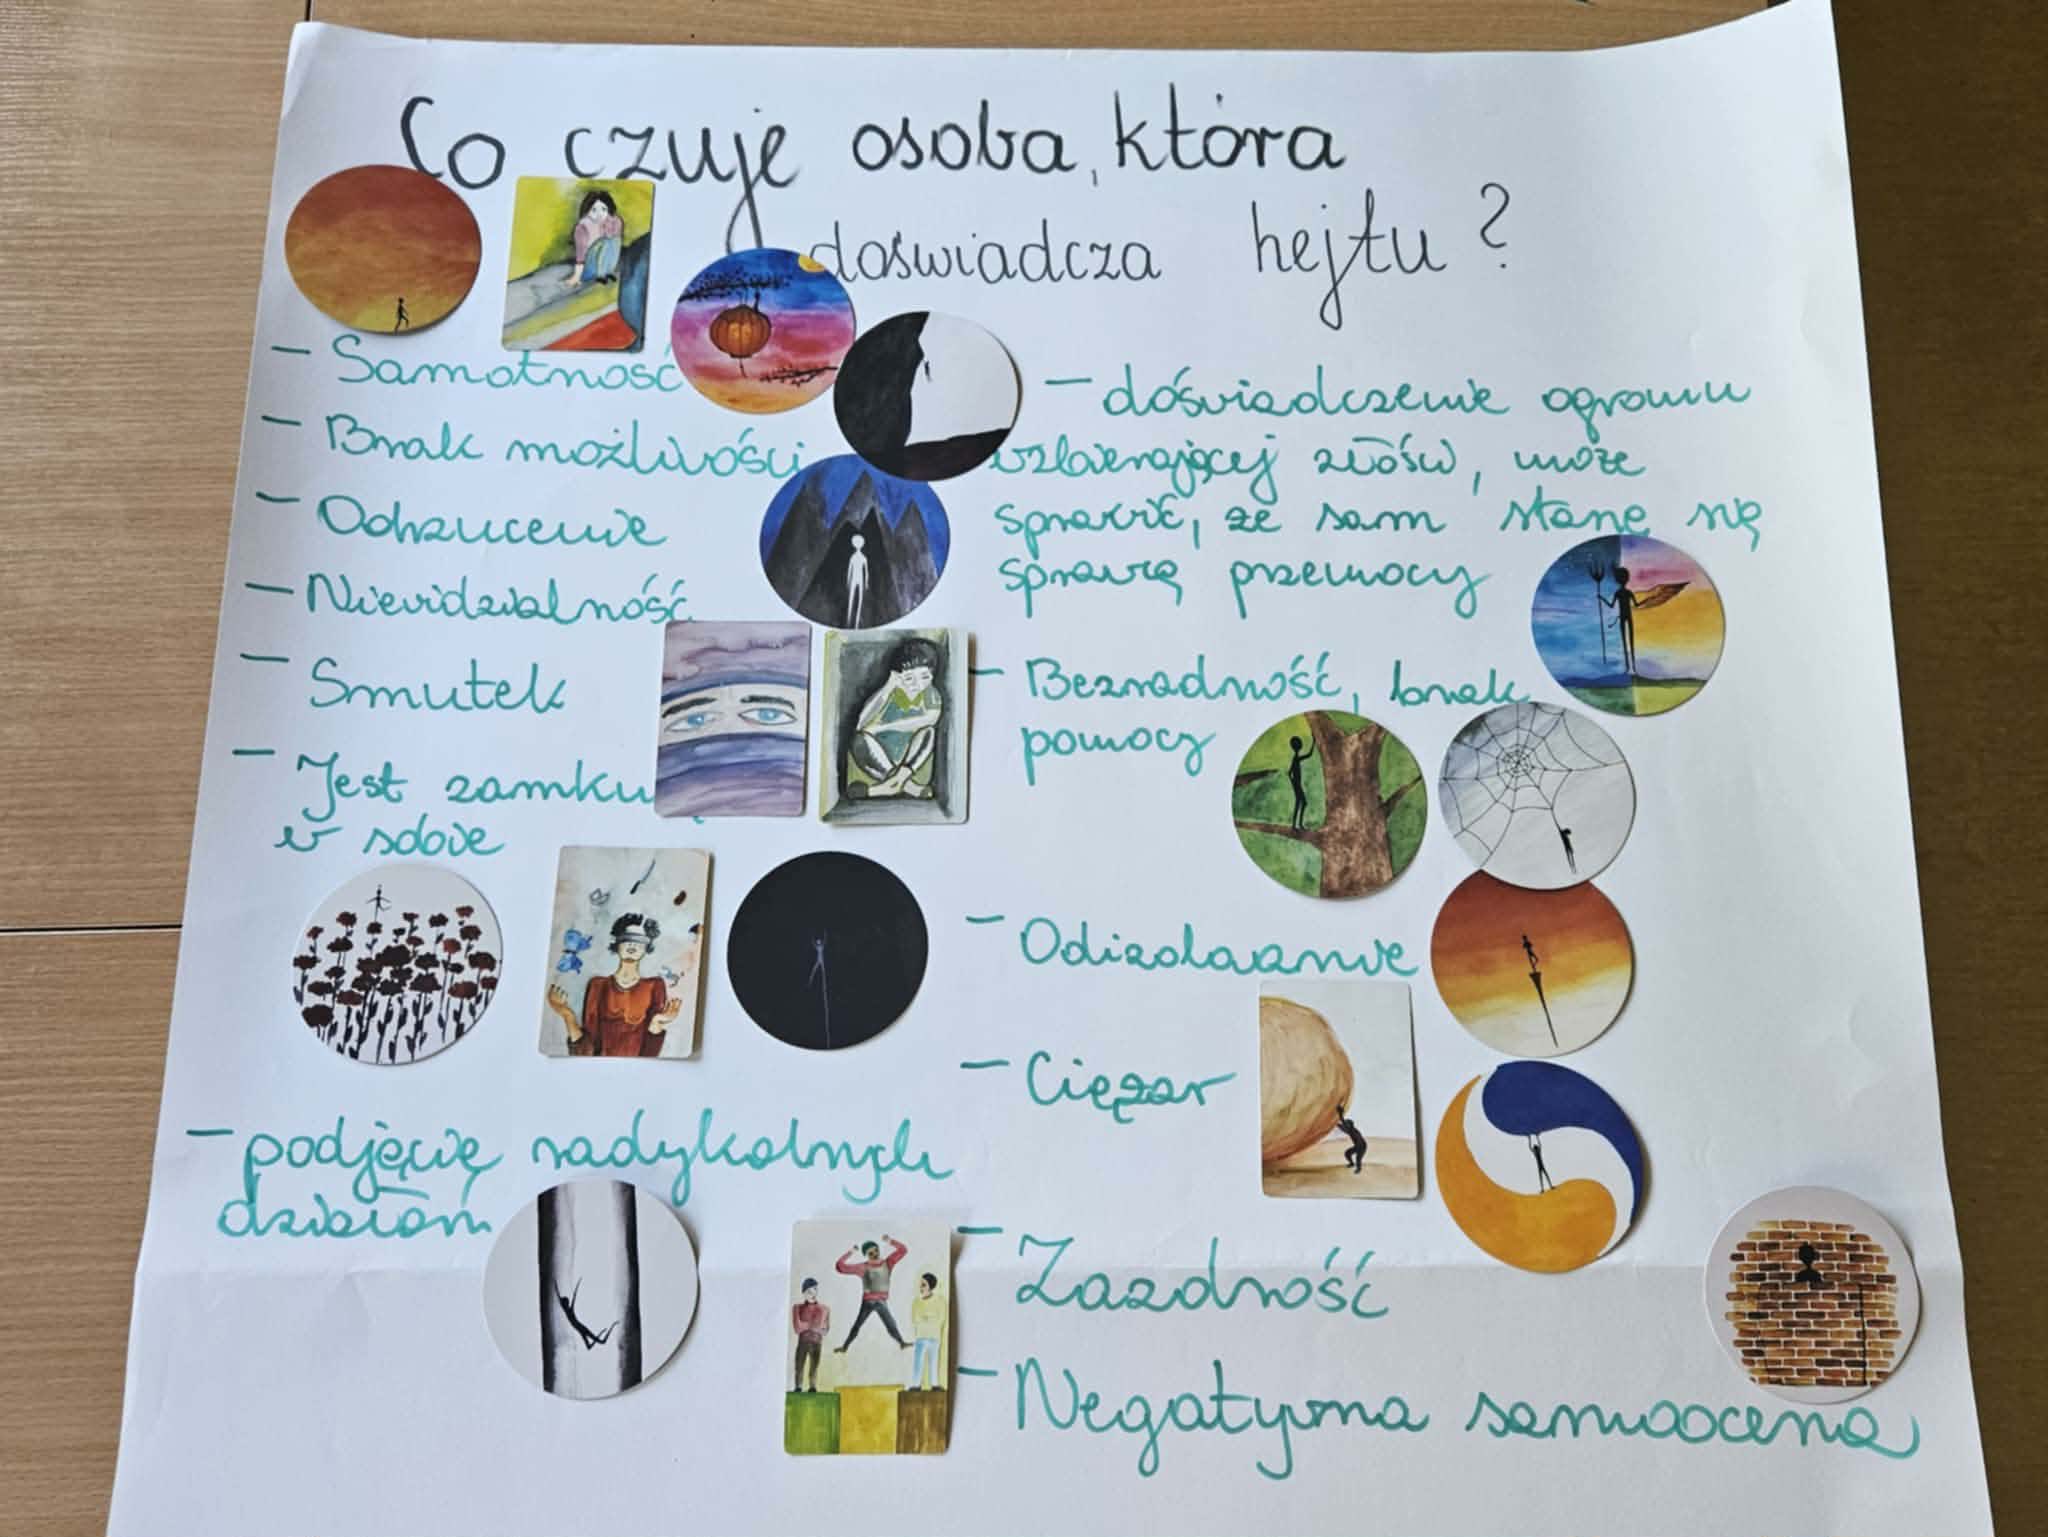 Co czuje osoba, która
doświadcza hejtu?
- Samotność
- Brak możliwości
- Odrzucenie
- Niewidzialność
- Smutek
- Jest
w sobie
- podjęcie radykalnych
działań
- doświadczenie ogromu
wzbierającej złości, może
sprawić, że sam stanę się
sprawcą przemocy
- Bezradność, brak
pomocy
- Odizolowanie
- Ciężar
- Zazdrość
- Negatywna samoocena